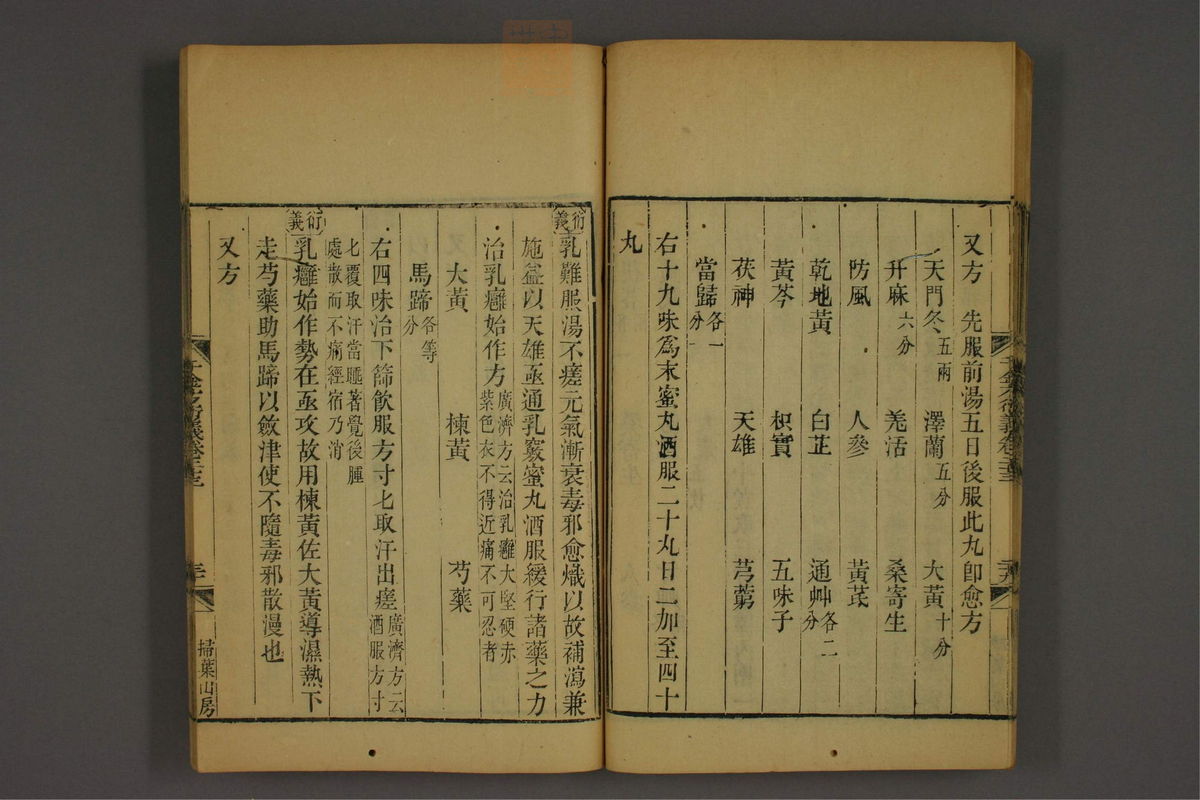 又方 先服前湯五日後服此丸卽愈方
天門冬五兩 澤蘭五分 大黃十分
升麻六分 羌活 桑寄生
防風 人參 黃芪
乾地黃 白芷 通艸各二分
黃芩 枳實 五味子
茯神 天雄 芎藭
當歸各一分
右十九味爲末蜜丸酒服二十丸日二加至四十
丸
衍義 乳難服湯不瘥元氣漸衰毒邪愈熾以故補瀉兼
施益以天雄亟通乳竅蜜丸酒服緩行諸藥之力
治乳癰始作方廣濟方云治乳癰大堅硬赤紫色衣不得近痛不可忍者
大黃 楝黃 芍藥
馬蹄各等分
右四味治下篩飲服方寸匕取汗出瘥廣濟方云酒服方寸
匕覆取汗當睡著覺後腫處散而不痛經宿乃消
衍義 乳癰始作勢在亟攻故用楝黃佐大黃導濕熱下
走芍藥助馬蹄以斂津使不隨毒邪散漫也
又方
掃葉山房